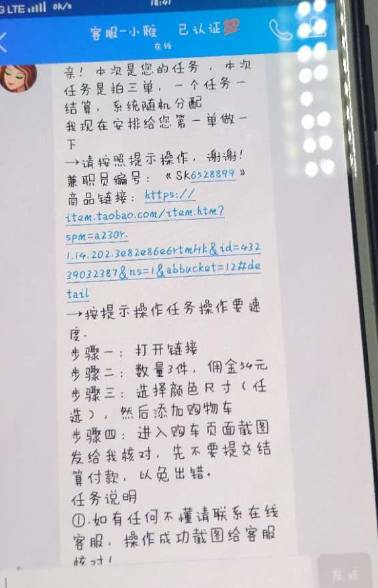 LTE
客服-小雅 已认证💯
在线
亲！本次是您的任务，本次
任务是拍三单，一个任务一
结算，系统随机分配
我现在安排给您第一单做一
下
→请按照提示操作，谢谢！
兼职员编号：《SK6528899》
商品链接：https://
item.taobao.com/item.htm?
spm=a230r.
1.14.202.3e82e86e6rtmHk&id=432
39032387&ns=1&abbucket=12#de
tail
→按提示操作任务操作要速
度.
步骤一：打开链接
步骤二：数量3件，佣金54元
步骤三：选择颜色尺寸（任
选），然后添加购物车
步骤四：进入购车页面截图
发给我核对，先不要提交结
算付款，以免出错。
任务说明
①.如有任何不懂请联系在线
客服，操作成功截图给客服
核对！
发送